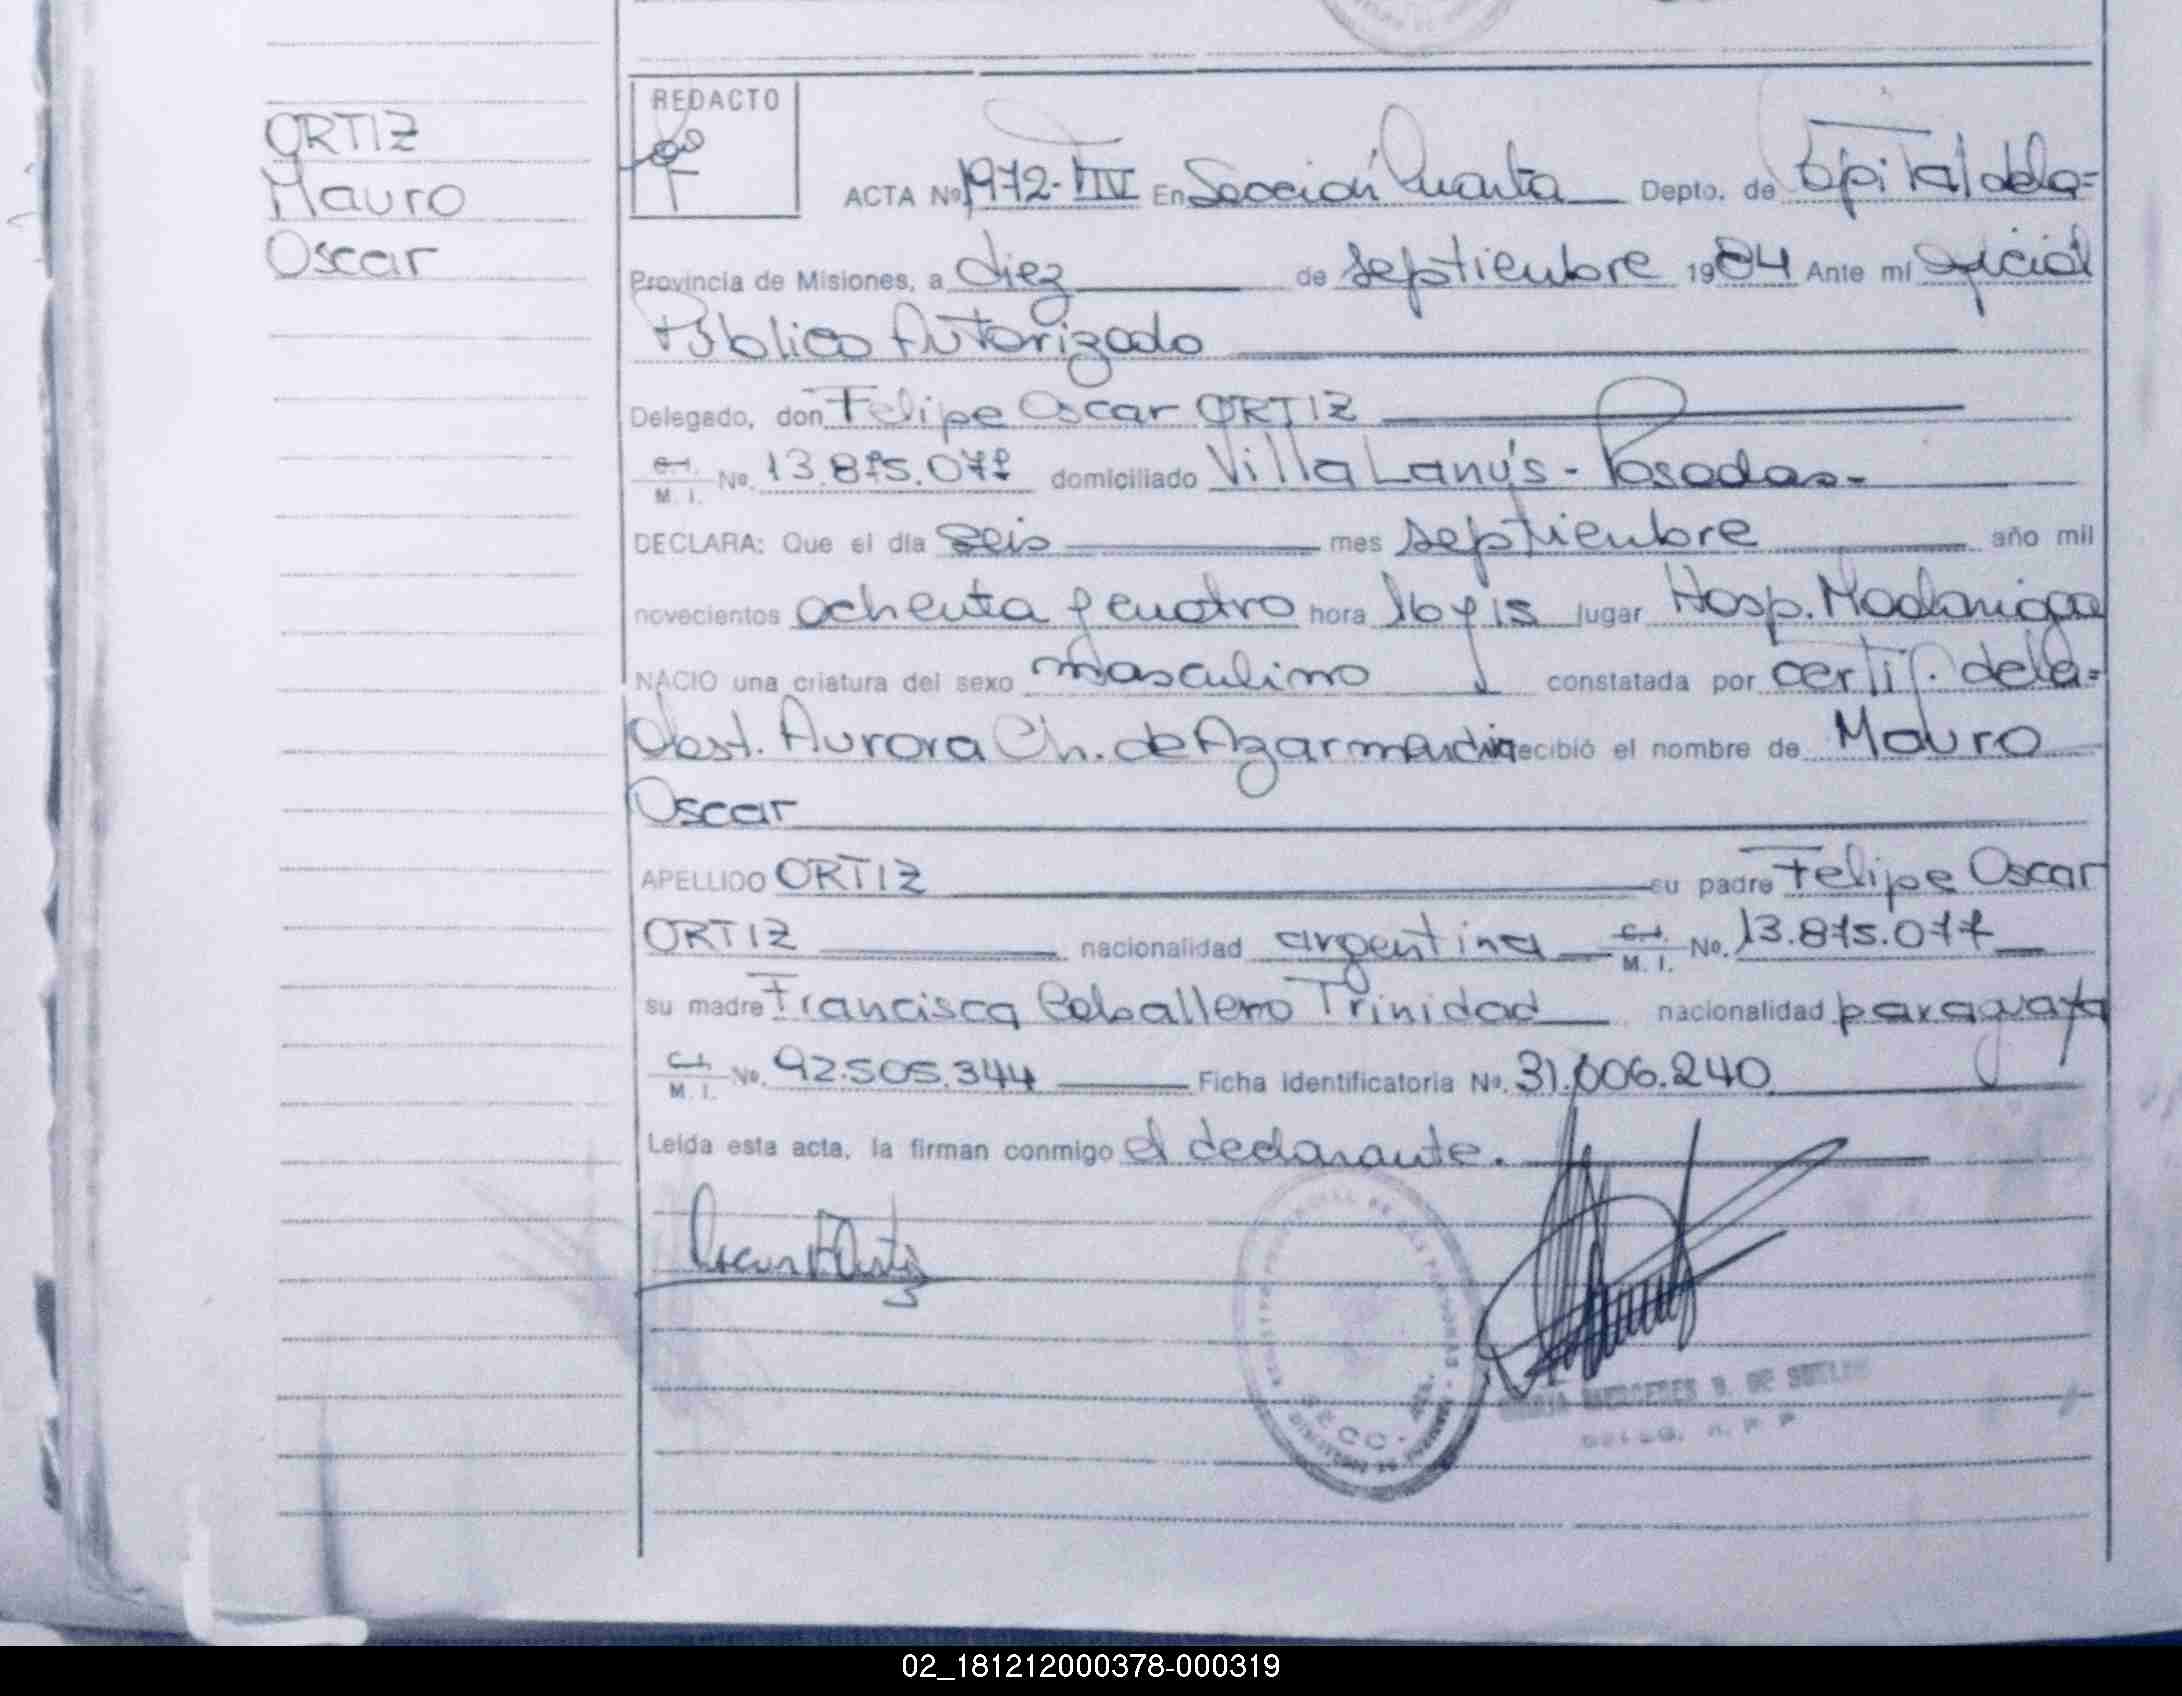 ORTIZ
Mauro
Oscar
REDACTO
ACTA No 1972-TIV En Sección Cuarta Depto. de Capital de la=
Provincia de Misiones, a diez de septiembre 1984 Ante mí oficial
Público Autorizado
Delegado, don Felipe Oscar ORTIZ
C.I. M. I. No. 13.875.077 domiciliado Villa Lanús - Posadas.-
DECLARA: Que el día seis mes septiembre año mil
novecientos ochenta y cuatro hora 16 y 15 lugar Hosp. Madariaga
NACIO una criatura del sexo masculino constatada por certif. de la=
Obst. Aurora Ch. de Azarmendia recibió el nombre de Mauro
Oscar
APELLIDO ORTIZ su padre Felipe Oscar
ORTIZ nacionalidad argentina C.I. M. I. No. 13.875.077
su madre Francisca Caballero Trinidad nacionalidad paraguaya
C.I. M. I. No. 92.505.344 Ficha identificatoria No. 31.006.240
Leída esta acta, la firman conmigo el declarante.
Oscar F Ortiz
REGISTRO PROVINCIAL DE LAS PERSONAS
SECC.
MERCEDES
DELEG. R. P. P
02_181212000378-000319